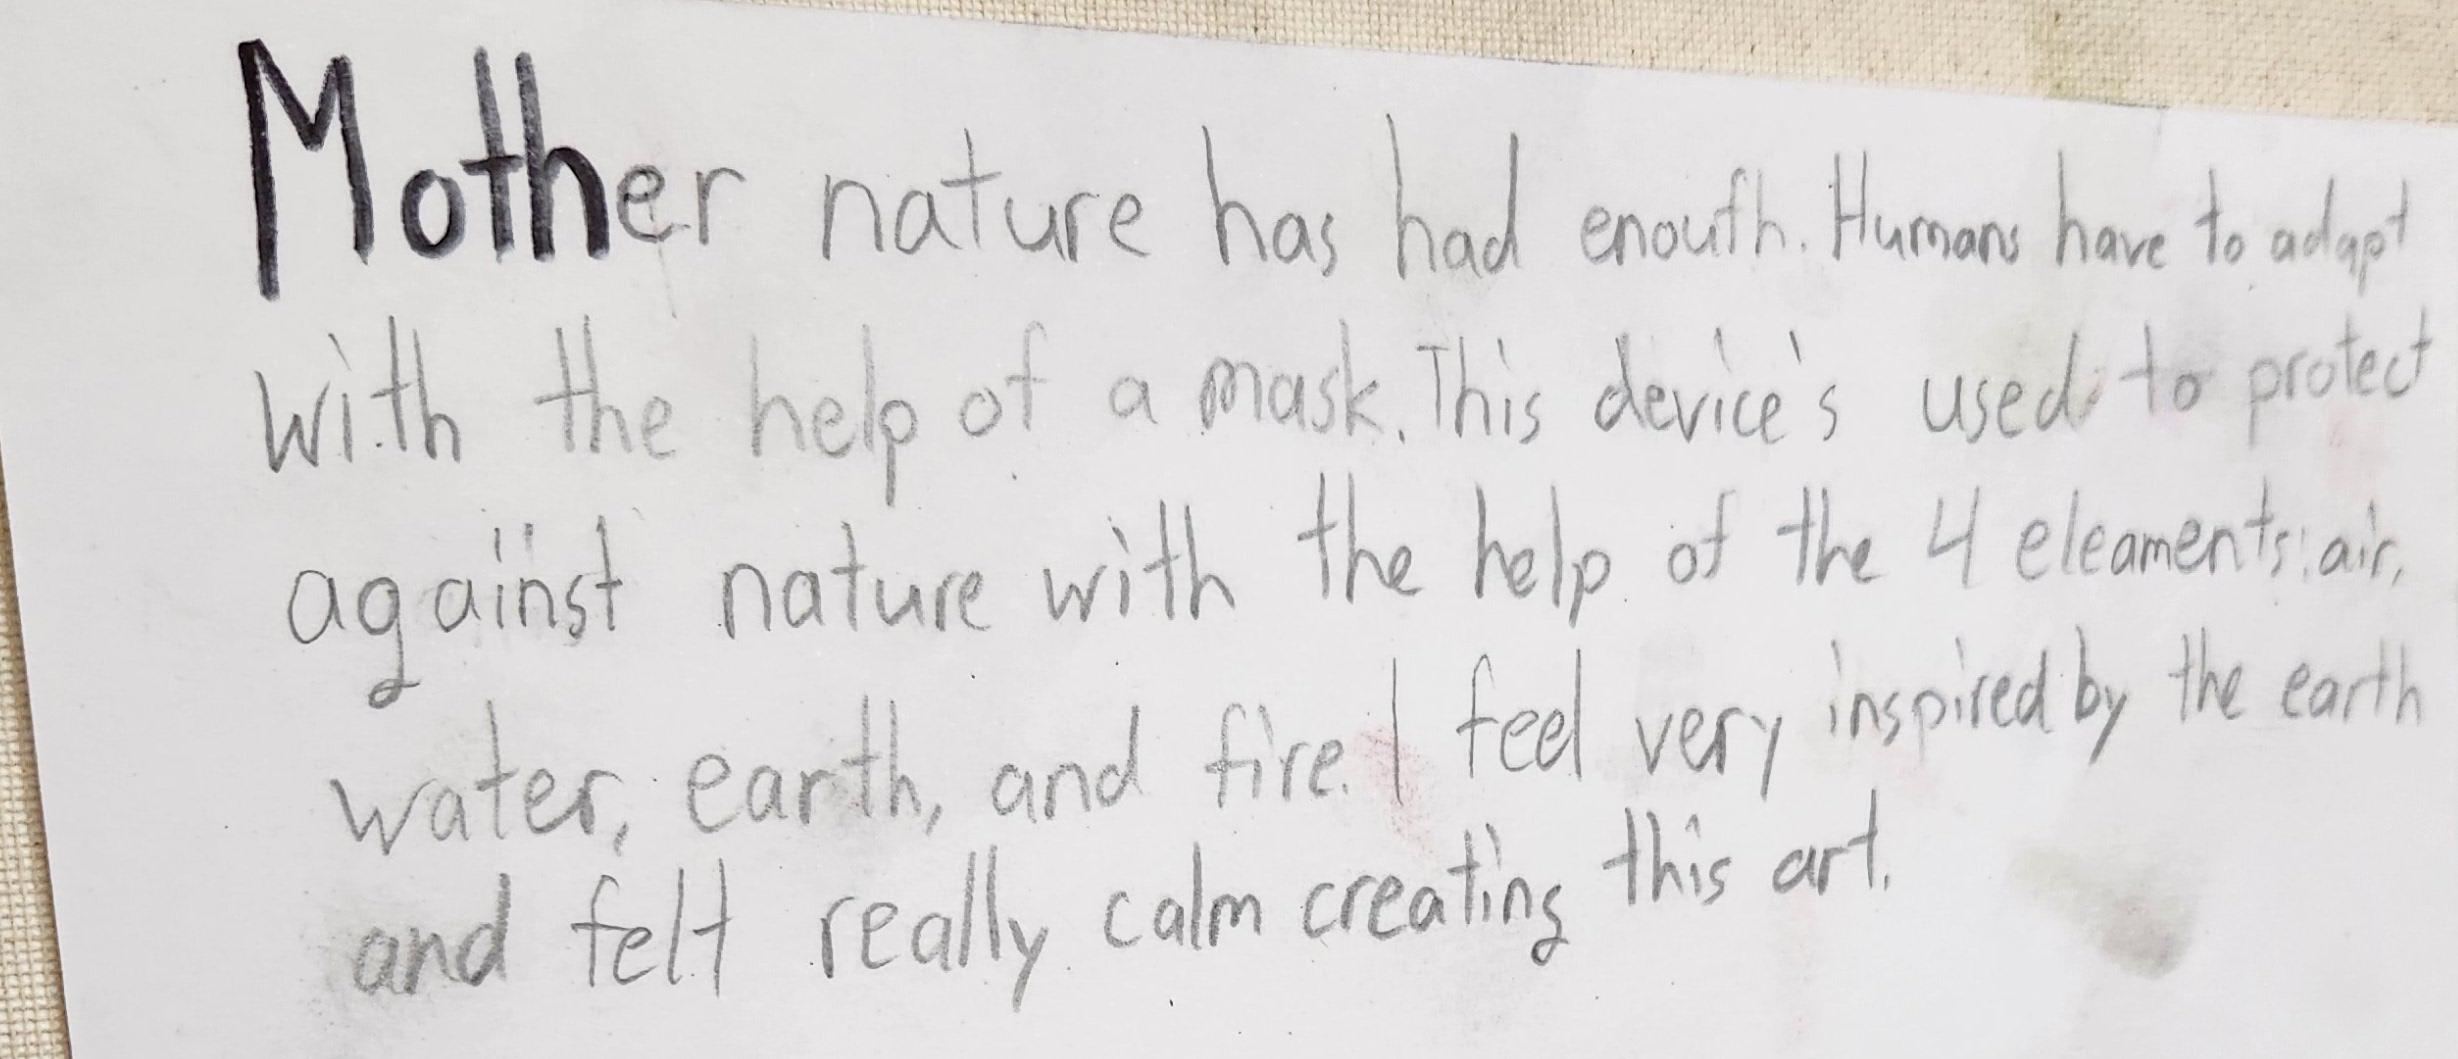 Mother nature has had enouth. Humans have to adapt
with the help of a mask. This device's used to protect
against nature with the help of the 4 eleaments: air,
water, earth, and fire. I feel very inspired by the earth
and felt really calm creating this art.